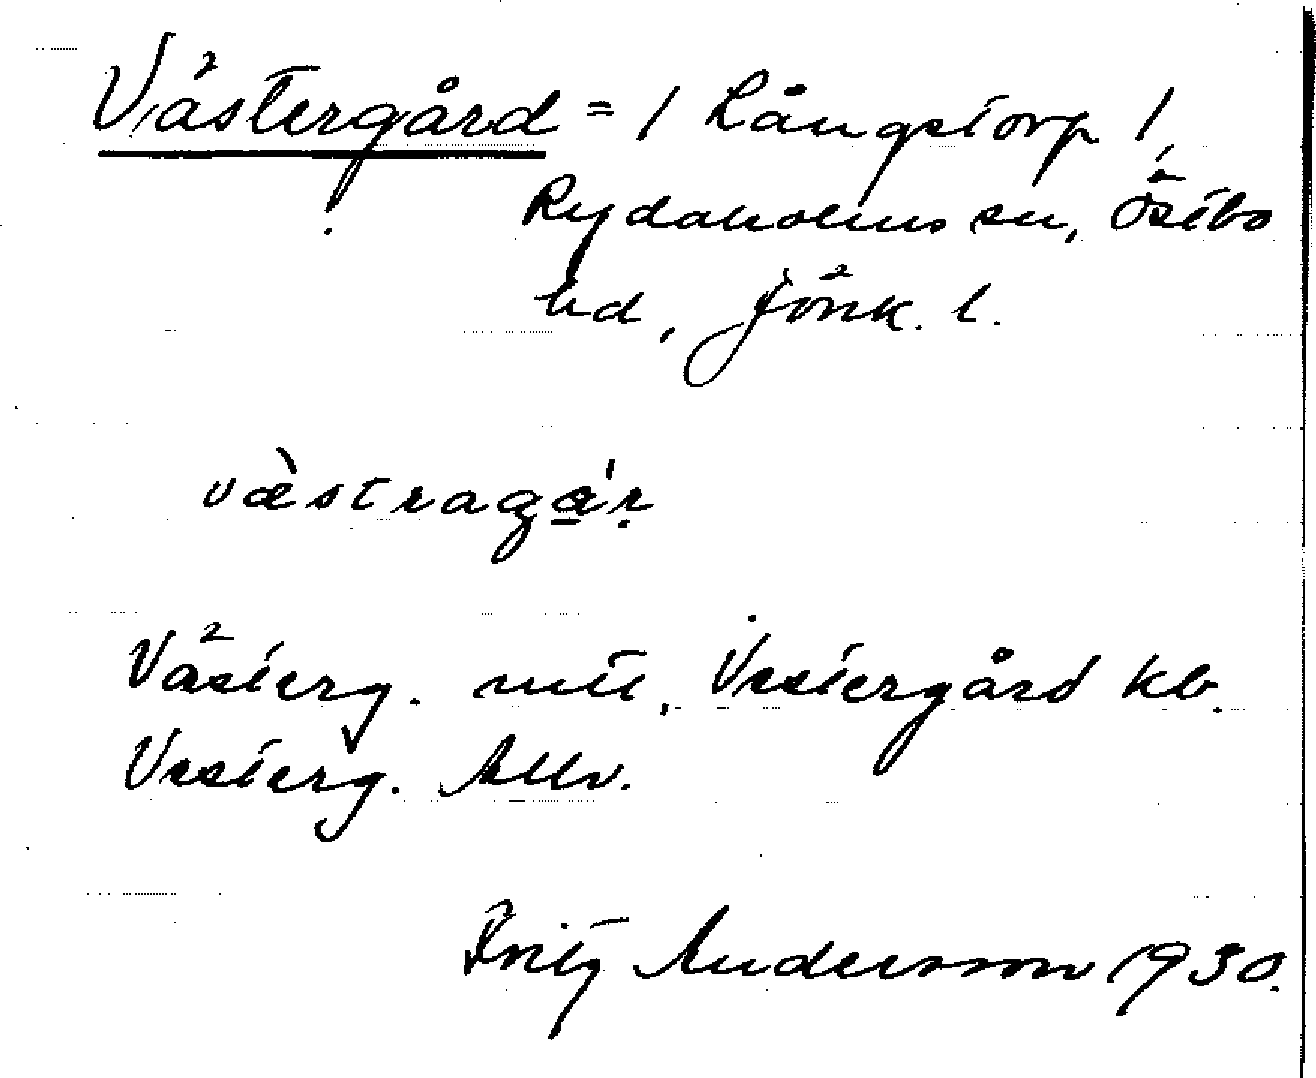 Västergård = / Långstorp /
Rydaholms sn, Östbo
hd, Jönk. l.
vàestragạ́r
Västerg. mtl, Vestergård kb.
Vesterg. Allv.
Fritz Andersson 1930.